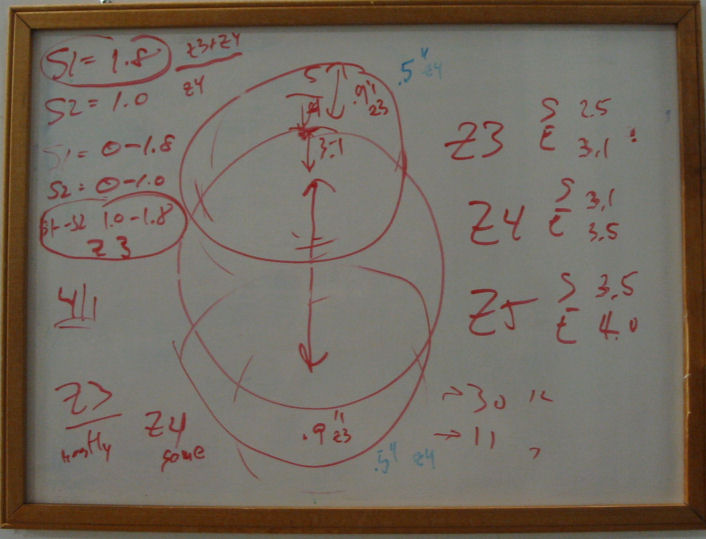 S1 = 1.8
Z3+Z4
Z4
S2 = 1.0
S1 = 0-1.8
S2 = 0-1.0
S1-S2 1.0-1.8
Z3
4/1
Z3
mostly
Z4
some
S
.9"
Z3
3.1
.5"
Z4
.9"
Z3
.5" Z4
Z3 S 2.5
E 3.1
Z4 S 3.1
E 3.5
Z5 S 3.5
E 4.0
→30
→11